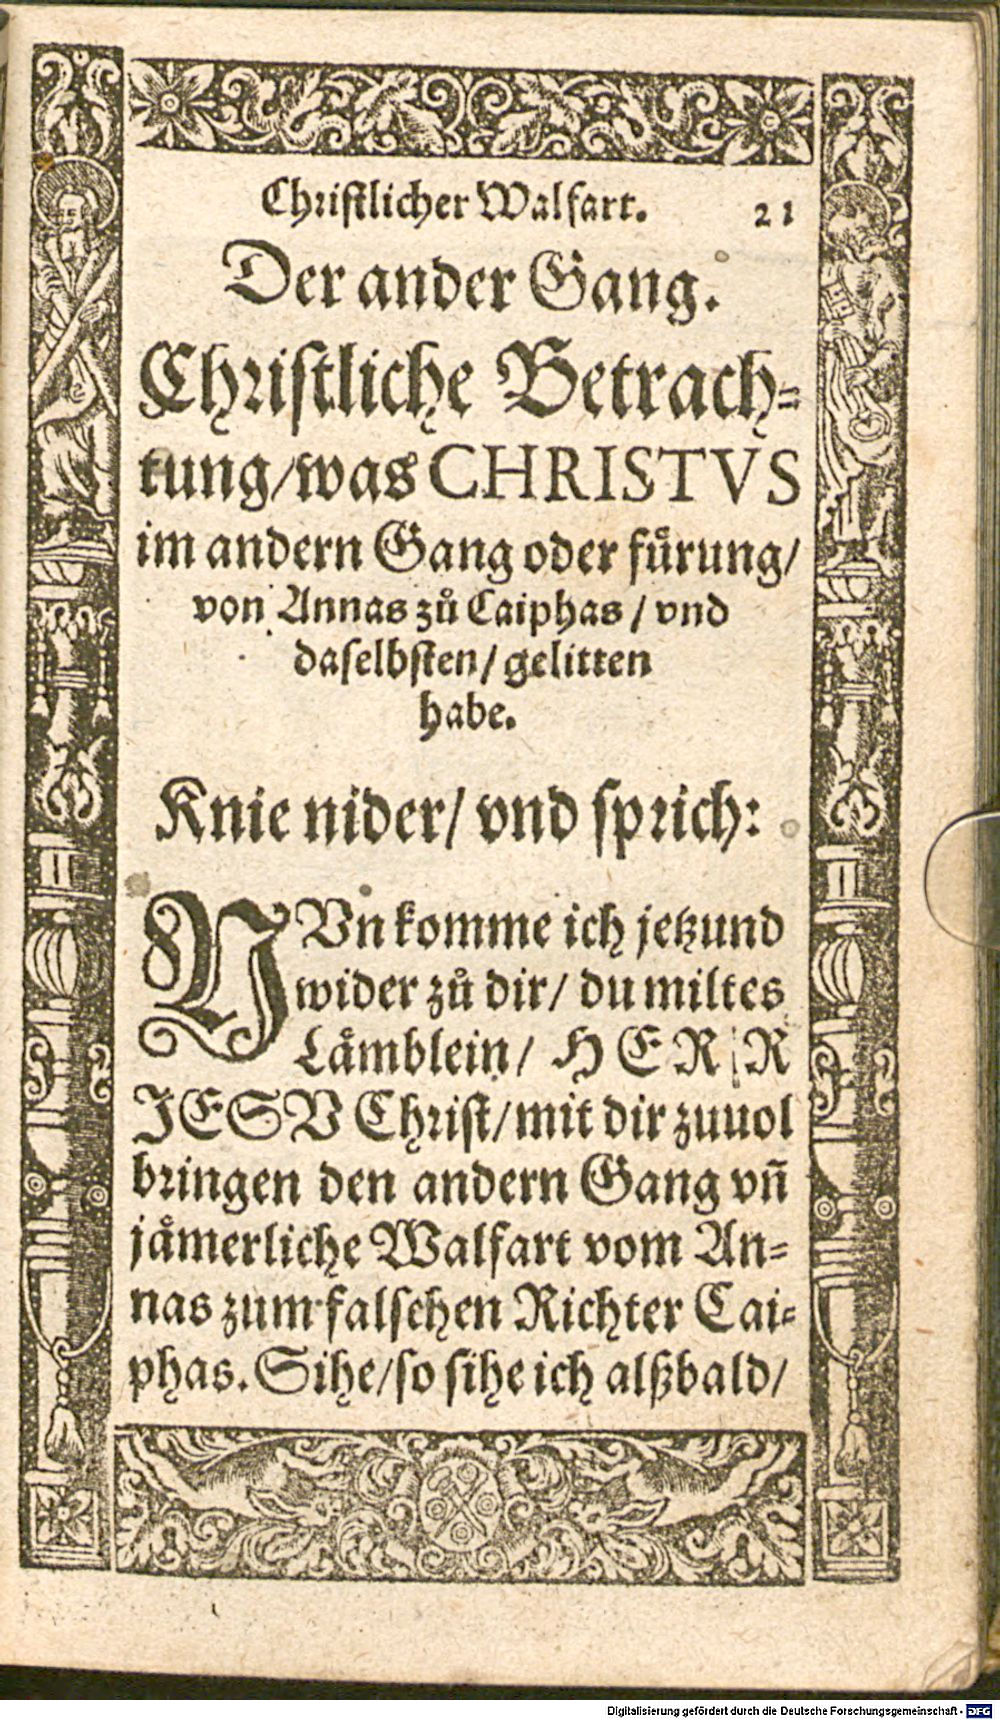 Christlicher Walfart. 21
Der ander Gang.
Christliche Betrach-
tung/was CHRISTVS
im andern Gang oder fuͤrung/
von Annas zů Caiphas / vnd
daselbsten/ gelitten
habe.
Knie nider/ vnd sprich:
NVn komme ich jetzund
wider zů dir/ du miltes
Laͤmblein/ HERR
JESV Christ/mit dir zuuol
bringen den andern Gang vñ
jaͤmerliche Walfart vom An-
nas zum falschen Richter Cai-
phas. Sihe/so sihe ich alßbald/
Digitalisierung gefördert durch die Deutsche Forschungsgemeinschaft - DFG